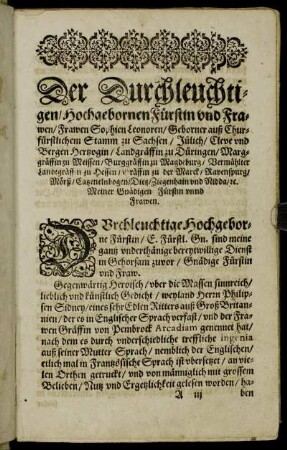 Der Durchleuchti-
gen/ Hochgebornen Fürstin vnd Fra-
wen/ Frawen Sophien Leonoren/ Geborner auß Chur-
fürstlichem Stamm zu Sachsen/ Jülich/ Cleve vnd
Bergen Hertzogin/ Landgräffin zu Düringen/ Marg-
gräffin zu Meissen/ Burggräffin zu Magdeburg/ Vermählter
Landgräffin zu Hessen/ Gräffin zu der Marck/ Ravenspurg/
Mörß/ Catzenelnbogen/ Dietz/ Ziegenhain vnd Nidda/ ꝛc.
Meiner Gnädigen Fürstin vnnd
Frawen.
DVrchleuchtige Hochgebor-
ne Fürstin/ E. Fürstl. Gn. sind meine
gantz vnderthänige bereytwillige Dienst
in Gehorsam zuvor/ Gnädige Fürstin
vnd Fraw.
Gegenwärtig Heroisch/ vber die Massen sinnreich/
lieblich vnd künstlich Gedicht/ weyland Herrn Philip-
sen Sidney/ eines sehr Edlen Ritters auß Groß Britan-
nien/ der es in Englischer Sprach verfast/ vnd der Fra-
wen Gräffin von Pembrock Arcadiam genennet hat/
nach dem es durch vnderschiedliche treffliche ingenia
auß seiner Mutter Sprach/ nemblich der Englischen/
etlich mal in Frantzösische Sprach ist vbersetzet/ an vie-
len Orthen getruckt/ vnd von männiglich mit grossem
Belieben/ Nutz vnd Ergetzlichkeit gelesen worden/ ha-
A iij ben